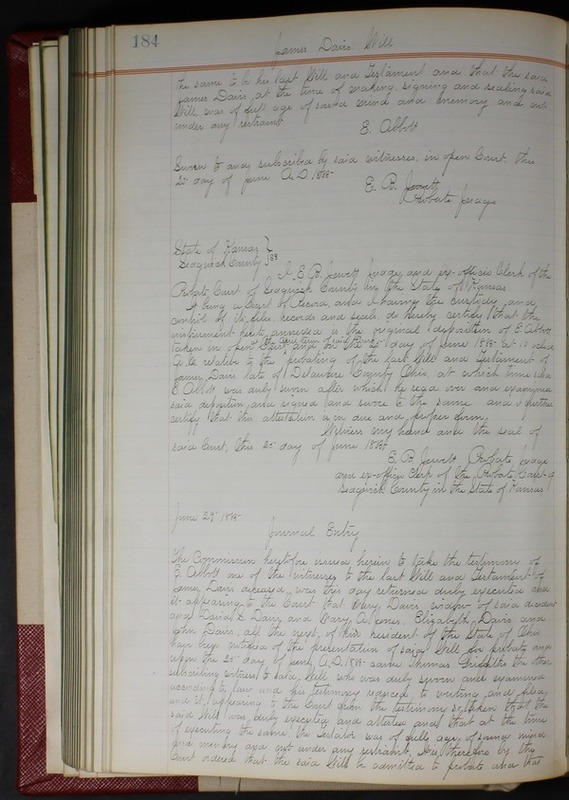 184
James Davis Will
the same to be his last Will and Testament and that the said
James Davis, at the time of making, signing and sealing said
Will, was of full age of sound mind and memory and not
under any restraint
E. Abbott
Sworn to and subscribed by said witnesses, in open Court, this
25 day of June A.D. 1885
E. B. Jewett
Probate Judge
State of Kansas }
Sedgwick County } SS
I E. B. Jewett Judge and ex-officio Clerk of the
Probate Court of Sedgwick County in the State of Kansas
it being a Court of Record, and it having the custody and
control of its files, records and seals, do hereby certify that the
instrument hereto annexed is the original deposition of E. Abbott
taken in open Court, and on the 25 day of June 1885
relates to the probating of the last Will and Testament of
James Davis late of Delaware County Ohio, at which time said
E. Abbott was duly sworn after which he read over and examined
said deposition and signed and swore to the same and I further
certify that this attestation is in due and proper form.
Witness my hand and the seal of
said Court, this 25 day of June 1885
E. B. Jewett Probate Judge
and ex-officio Clerk of the Probate Court of
Sedgwick County in the State of Kansas
June 29 1885
Journal Entry
The Commission heretofore issued herein to take the testimony of
E. Abbott one of the witnesses to the last Will and Testament of
James Davis deceased was this day returned duly executed and
it appearing to the Court that Mary Davis, widow of said decedent
and David S. Davis and Mary A. Jones, Elizabeth Davis and
John Davis, all the next of kin resident of the State of Ohio
have been notified of the presentation of said Will for probate and
upon the 25 day of June A.D. 1885 came Thomas Griffiths the other
subscribing witness to said Will who was duly sworn and examined
according to law and his testimony reduced to writing and filed
and it appearing to the Court from the testimony so taken that the
said Will was duly executed and attested and that at the time
of executing the same, the testator was of full age, of sound mind
and memory and not under any restraint. It is therefore by the
Court ordered that the said Will be admitted to probate and that